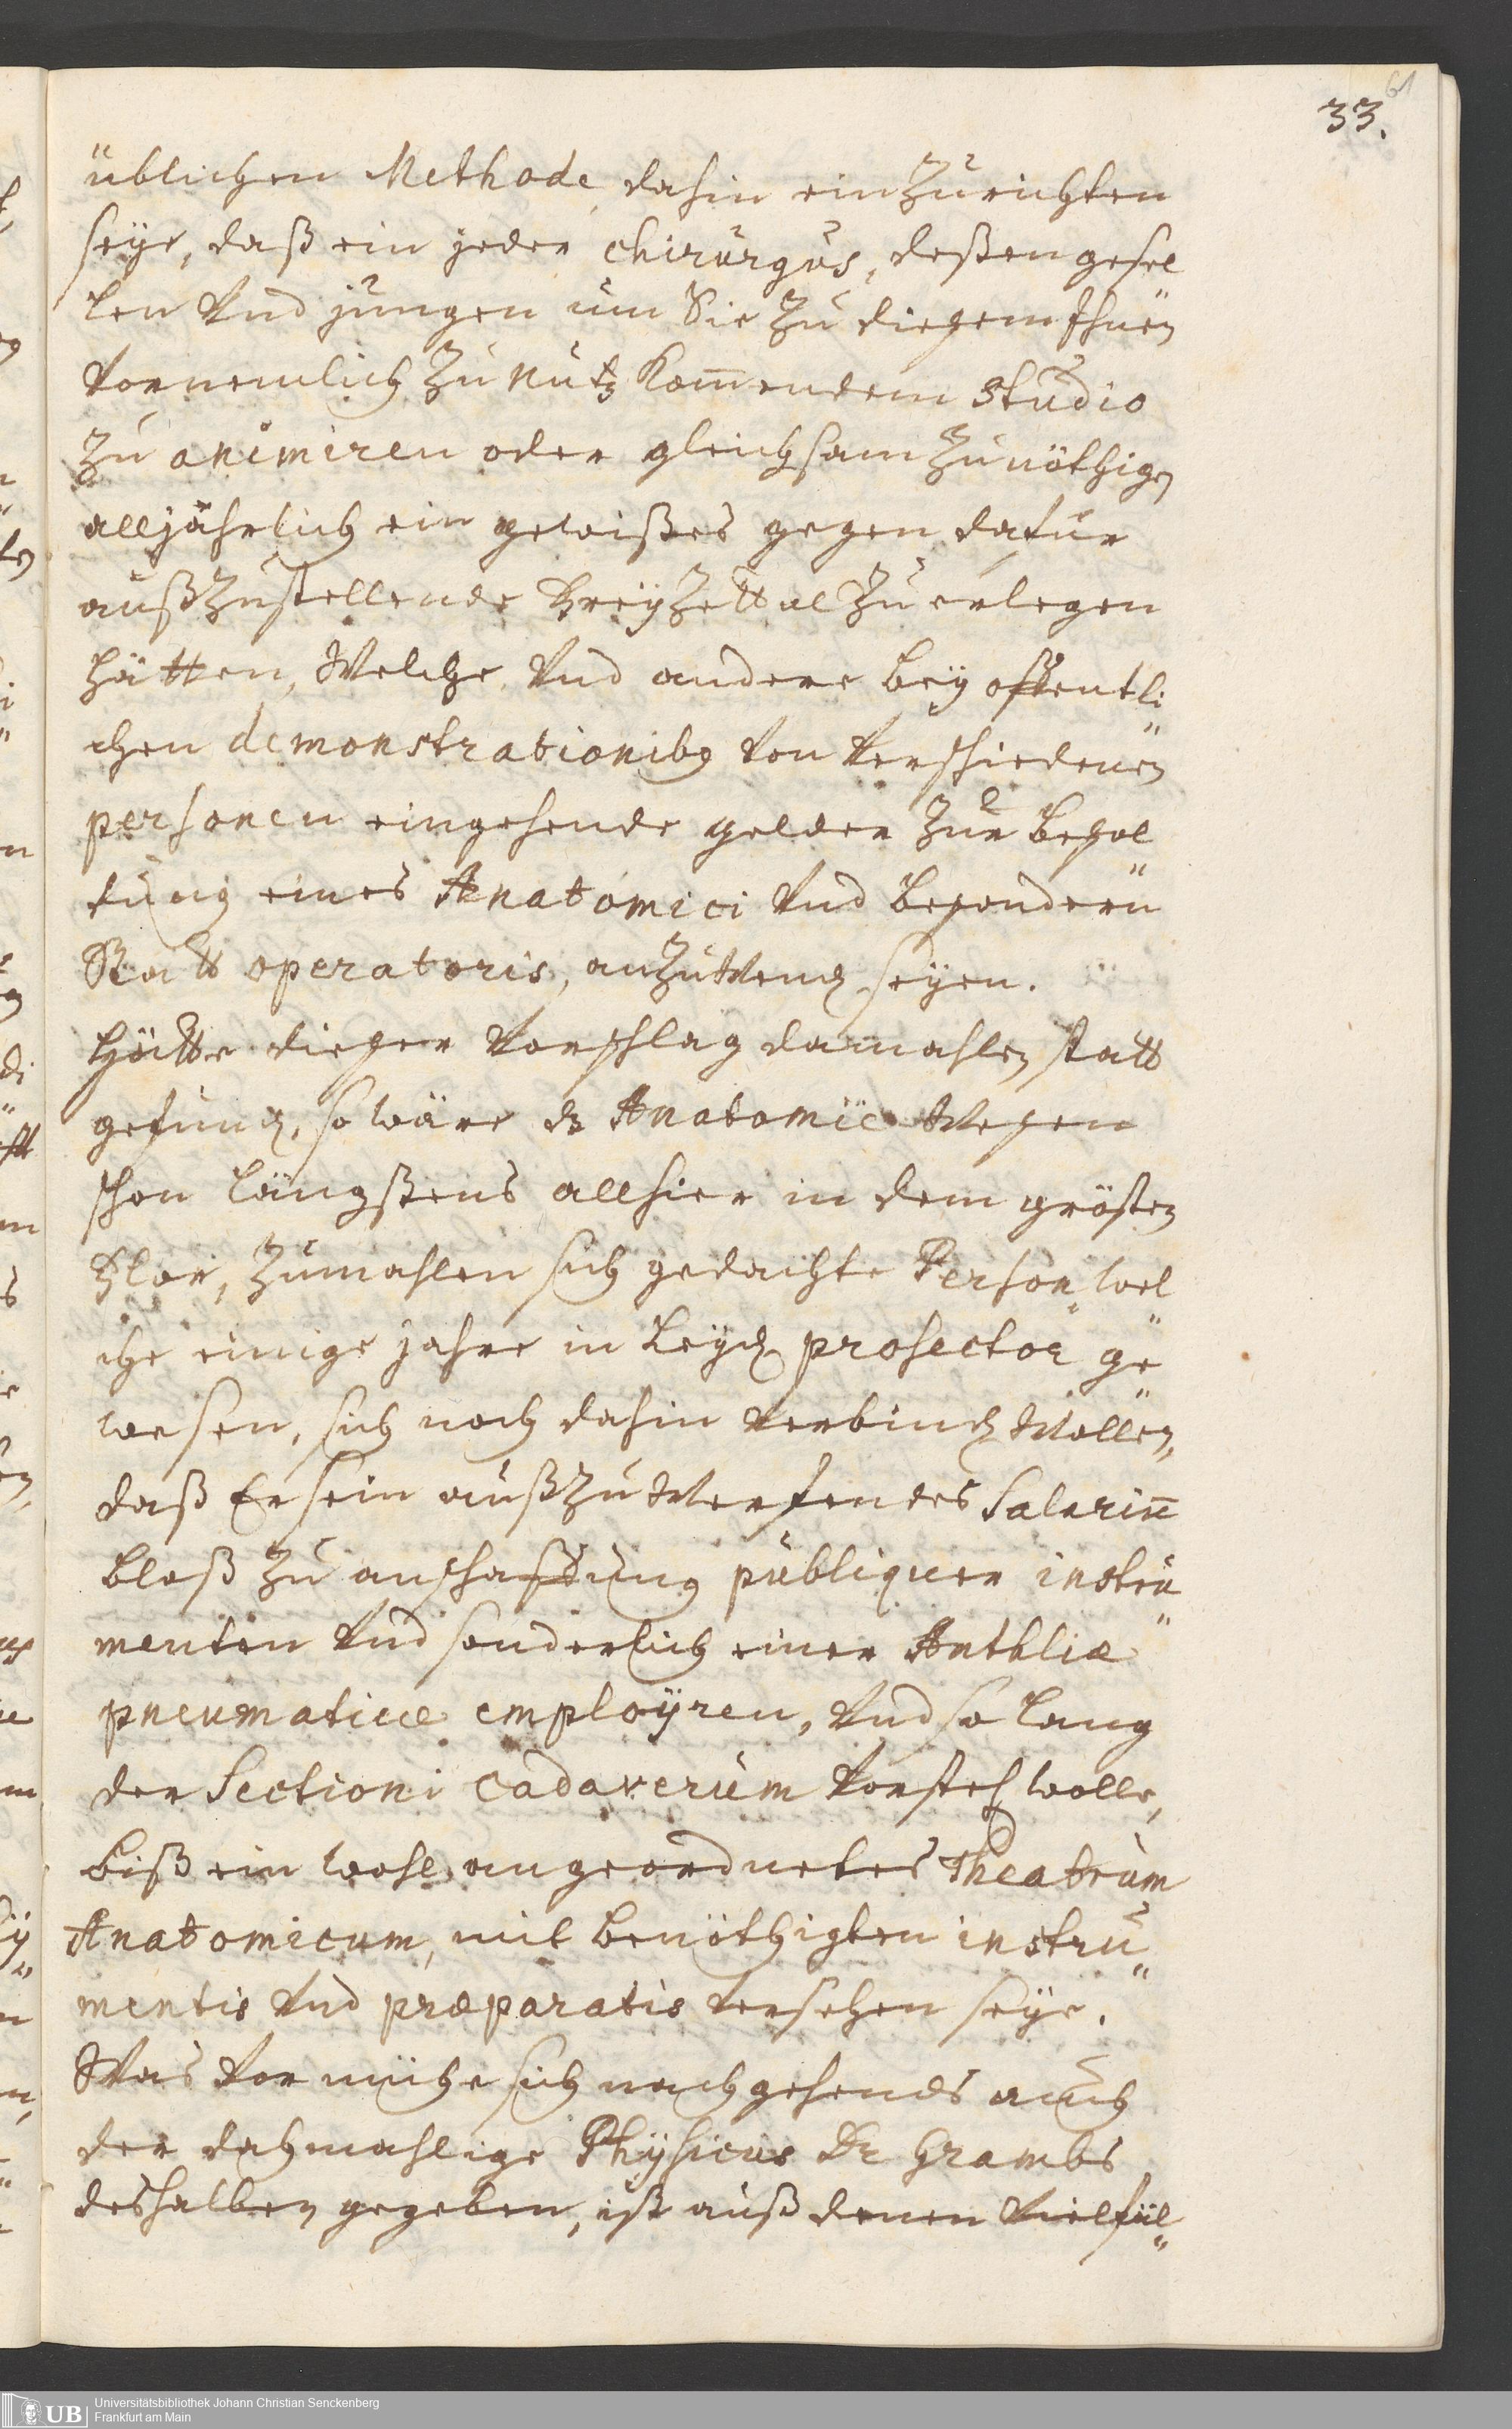 61
33.
üblichen Methode, dahin einzurichten
seye, daß ein jeder Chirurgus, deßen gesel„
len und jungen um Sie zu dießem Ihnen
vornemlich zu nutz kom̅endem Studio
zu animiren oder gleichsam zu nöthigen
alljährlich ein gewißes gegen dafür
außzustellende Freyzettel zu erlegen
hätten, Welche und andere bey offentli„
chen demonstrationibus von verschiedenen
personen eingehende gelder zur besol„
dung eines Anatomici und besondern
Statt operatoris, anzuwenden seyen.
Hätte dießer Vorschlag damahlen statt
gefunden, so wäre das Anatomie Weßen
schon längstens allhier in dem grösten
Flor, zumahlen sich gedachte Person, wel„
che einige jahre in Leyden prosector ge„
wesen, sich noch dahin verbinden Wollen,
daß Er sein außzuwerfendes Salarium
bloß zu anschaffung publiquer instru„
menten und sonderlich einer Anthliæ
pneumaticæ employren, und so lang
der Sectioni Cadaverum vorstehen wolle,
biß ein wohl angeordnetes Theatrum
Anatomicum, mit benöthigten instru„
mentis und præparatis versehen seye.
Was vor mühe sich nachgehends auch
der dahmahlige Physicus Dr Grambs
deshalben gegeben, ist auß denen vielfäl„
UB
Universitätsbibliothek Johann Christian Senckenberg
Frankfurt am Main